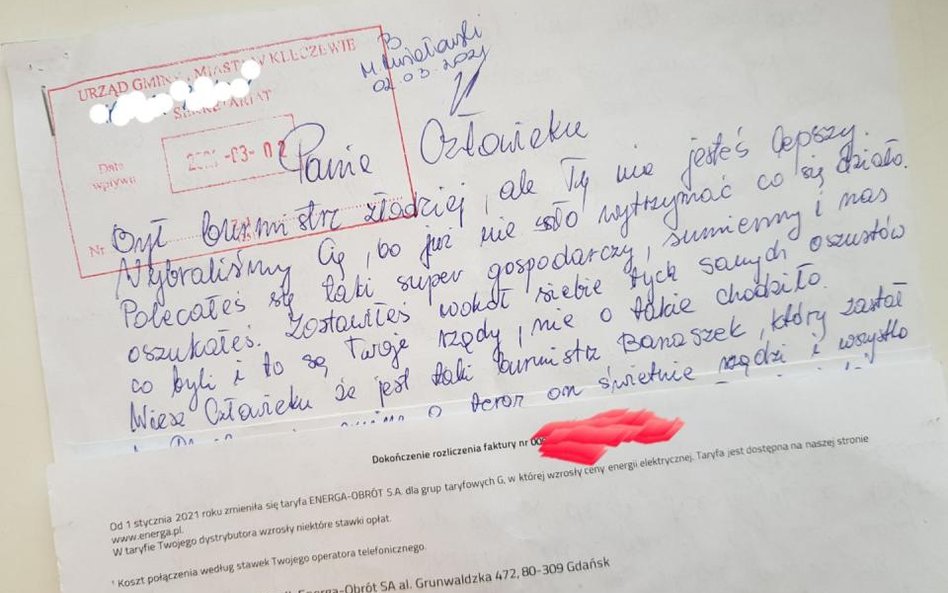 URZĄD GMINY I MIASTA W KLECZEWIE
SEKRETARIAT
Data
wpływu
2021-03-02
Nr
B
M.
02.03.2021
Panie Człowieku
Był burmistrz złodziej, ale Ty nie jesteś lepszy.
Wybraliśmy Cię, bo już nie szło wytrzymać co się działo.
Polecałeś się taki super gospodarczy, sumienny i nas
oszukałeś. Zostawiłeś wokół siebie tych samych oszustów
co byli i to są Twoje rządy, nie o takie chodziło.
Wiesz Człowieku że jest taki burmistrz Banaszek, który zastał
a teraz on świetnie rządzi i wszystko
Dokończenie rozliczenia faktury nr 00
Od 1 stycznia 2021 roku zmieniła się taryfa ENERGA-OBRÓT S.A. dla grup taryfowych G, w której wzrosły ceny energii elektrycznej. Taryfa jest dostępna na naszej stronie
www.energa.pl.
W taryfie Twojego dystrybutora wzrosły niektóre stawki opłat.
¹ Koszt połączenia według stawek Twojego operatora telefonicznego.
Energa-Obrót SA al. Grunwaldzka 472, 80-309 Gdańsk